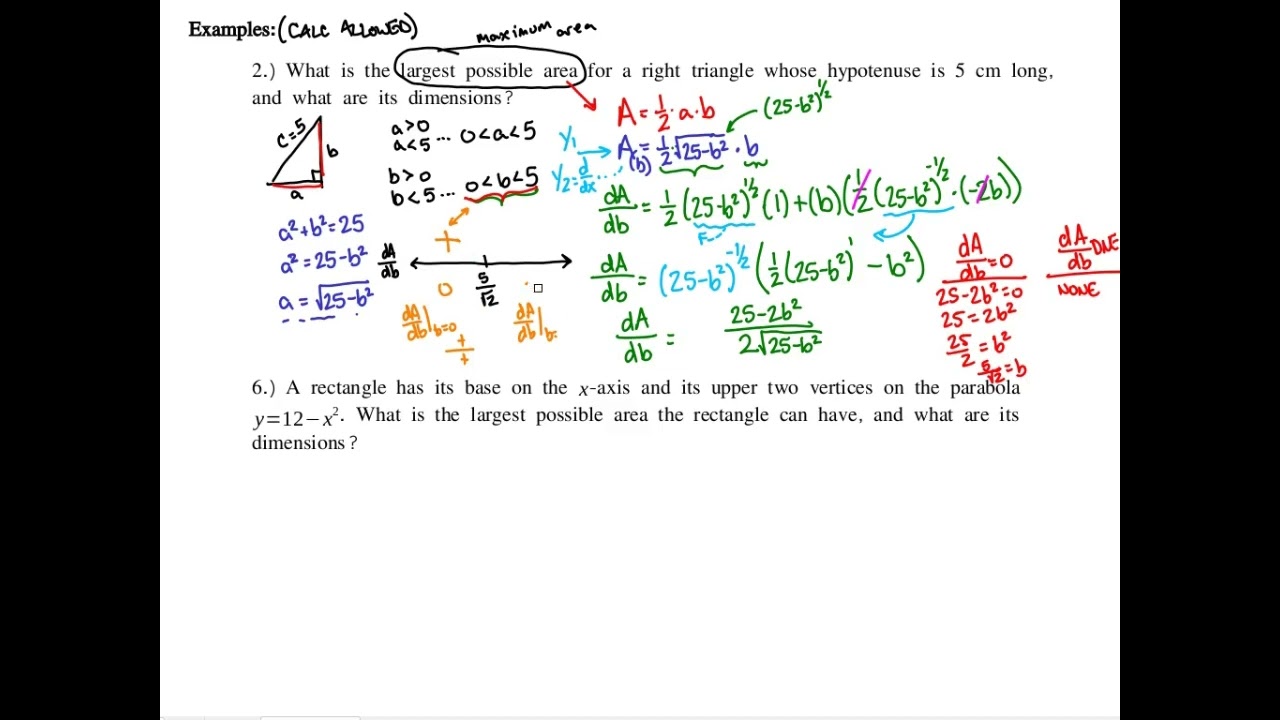 Examples: (CALC ALLOWED)
maximum area
2.) What is the largest possible area for a right triangle whose hypotenuse is 5 cm long,
and what are its dimensions?
c=5
b
a
a>0
a<5 ... 0<a<5
b>0
b<5 ... 0<b<5
A = 1/2·a·b
(25-b²)^1/2
y₁
A(b) = 1/2·√25-b² · b
y₂ = d/dx ...
a²+b²=25
a²=25-b²
a=√25-b²
dA/db = 1/2 (25-b²)^1/2 (1) + (b)(1/2 (25-b²)^-1/2 · (-2b))
dA/db = (25-b²)^-1/2 (1/2 (25-b²)^1 - b²)
dA/db = 25-2b² / 2√25-b²
dA/db
+
0
5/√2
dA/db|b=0
+/+
dA/db|b=
dA/db =0
25-2b²=0
25=2b²
25/2=b²
5/√2=b
dA/db DNE
NONE
6.) A rectangle has its base on the x-axis and its upper two vertices on the parabola
y=12−x². What is the largest possible area the rectangle can have, and what are its
dimensions?